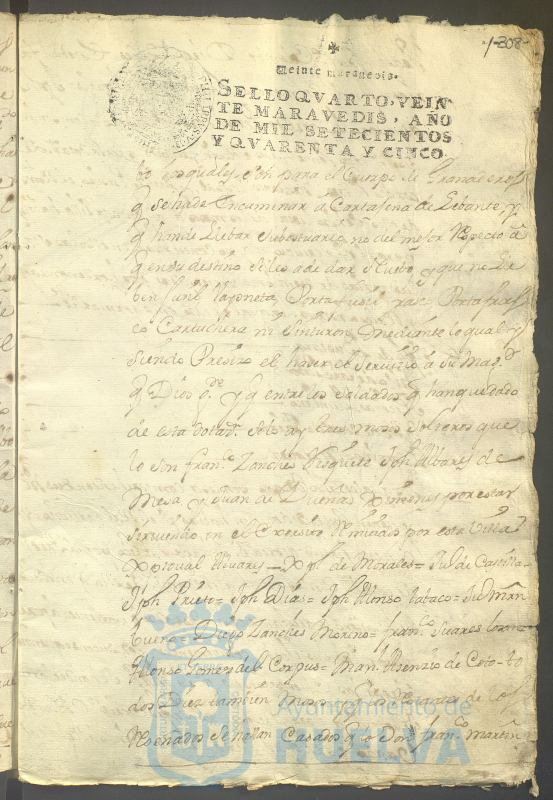 1-308-
Veinte maravedis.
SELLO QVARTO, VEIN
TE MARAVEDIS, AÑO
DE MIL SETECIENTOS
Y QVARENTA Y CINCO.
los quales son para el Cuerpo de Granaderos
q se ha de Encaminar a Cartajena de Lebante, y
q han de llebar su bestuario, no del mejor Respecto a
q en su destino se les a de dar Nuebo y que no
ben fusil Bayoneta Porta fusil Porta fras
co Cartuchera ni Sinturon mediante lo qual y
siendo Presizo el hacer el seruicio a Su Mag.d
q Dios g.e y q entre los soldados q han quedado
de esta dotaz.n solo ay tres mozos solteros que
lo son fran.co Zanches Vizquete Jph Albares de
Mesa y Juan de Dueñas Ximenes por estar
siruiendo en el Exersito Remitidos por esta Villa
Xptoual Aluares = Xpl de Morales = Jul de Castilla
Jph Prieto = Jph Dias = Jph Alonso tabaco = Ju Min
bueno = Diego Zanches Moreno = fran.co Suares
Alonso Gomes del Corpus = Man.l Asenzio de Coto to
dos Diez tambien Mozos de los
Reseñados se hallan Casados q lo son fran.co martin
Ayuntamiento de
HUELVA